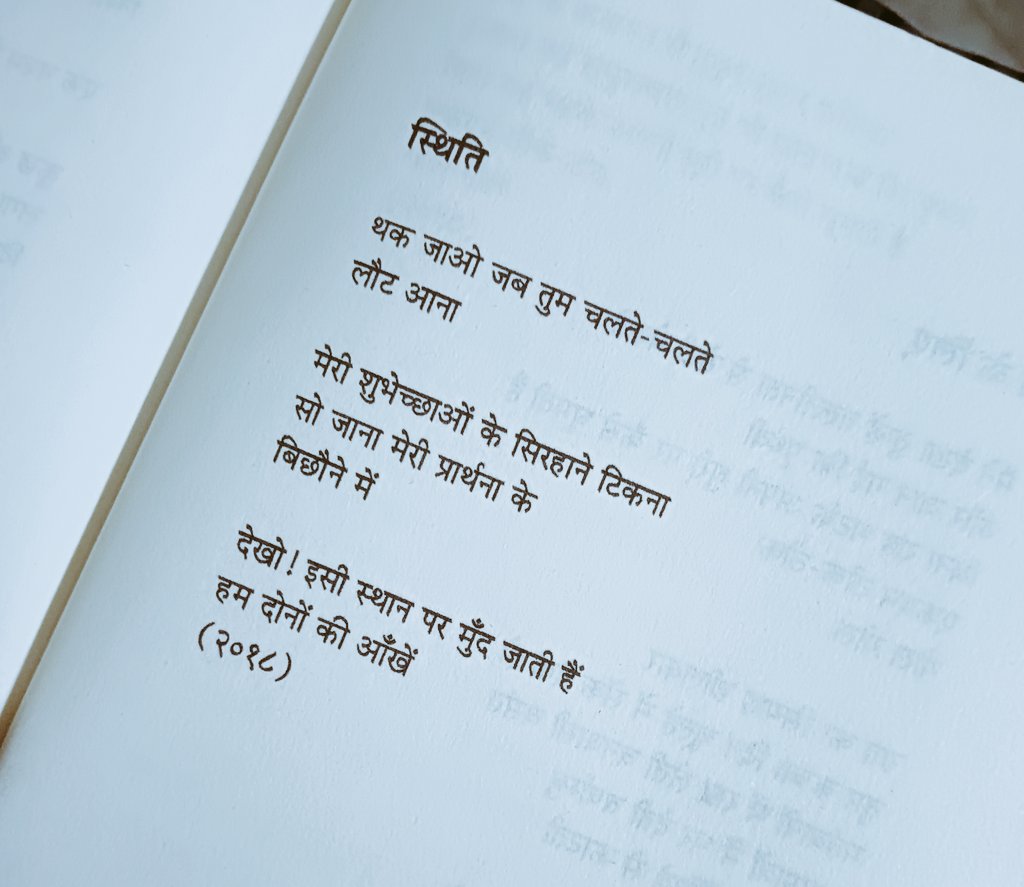 स्थिति
थक जाओ जब तुम चलते-चलते
लौट आना
मेरी शुभेच्छाओं के सिरहाने टिकना
सो जाना मेरी प्रार्थना के
बिछौने में
देखो! इसी स्थान पर मुँद जाती हैं
हम दोनों की आँखें
(२०१८)